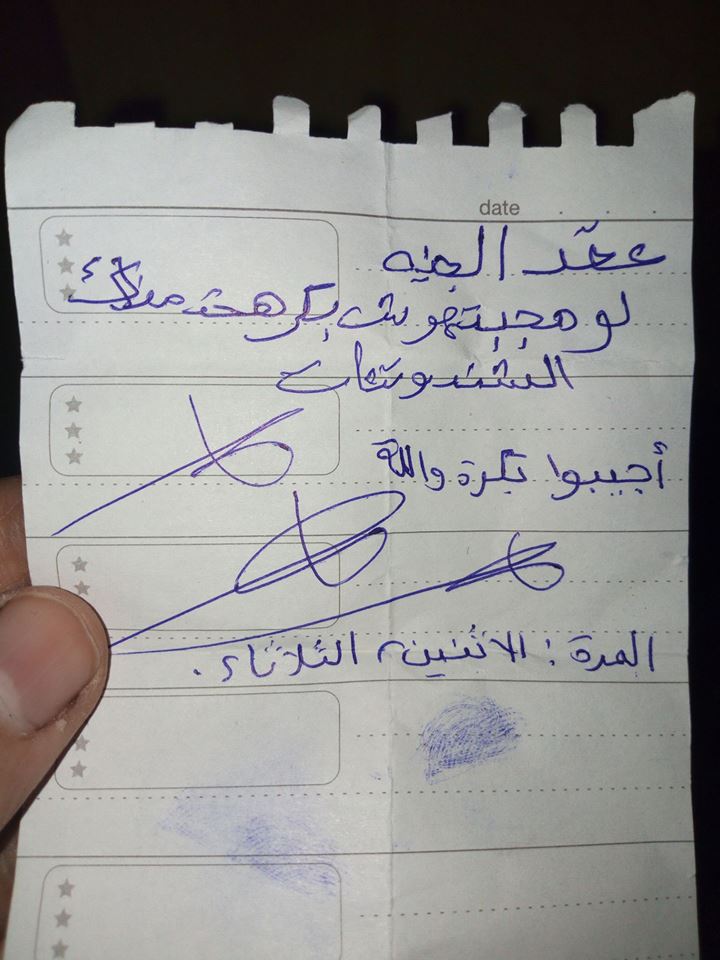 date . . .
عقد الجنيه
لو مجبتهوش بكره هخد منك
الشندوتشات
أجيبوا بكرة والله
المدة : الاثنين، الثلاثاء.